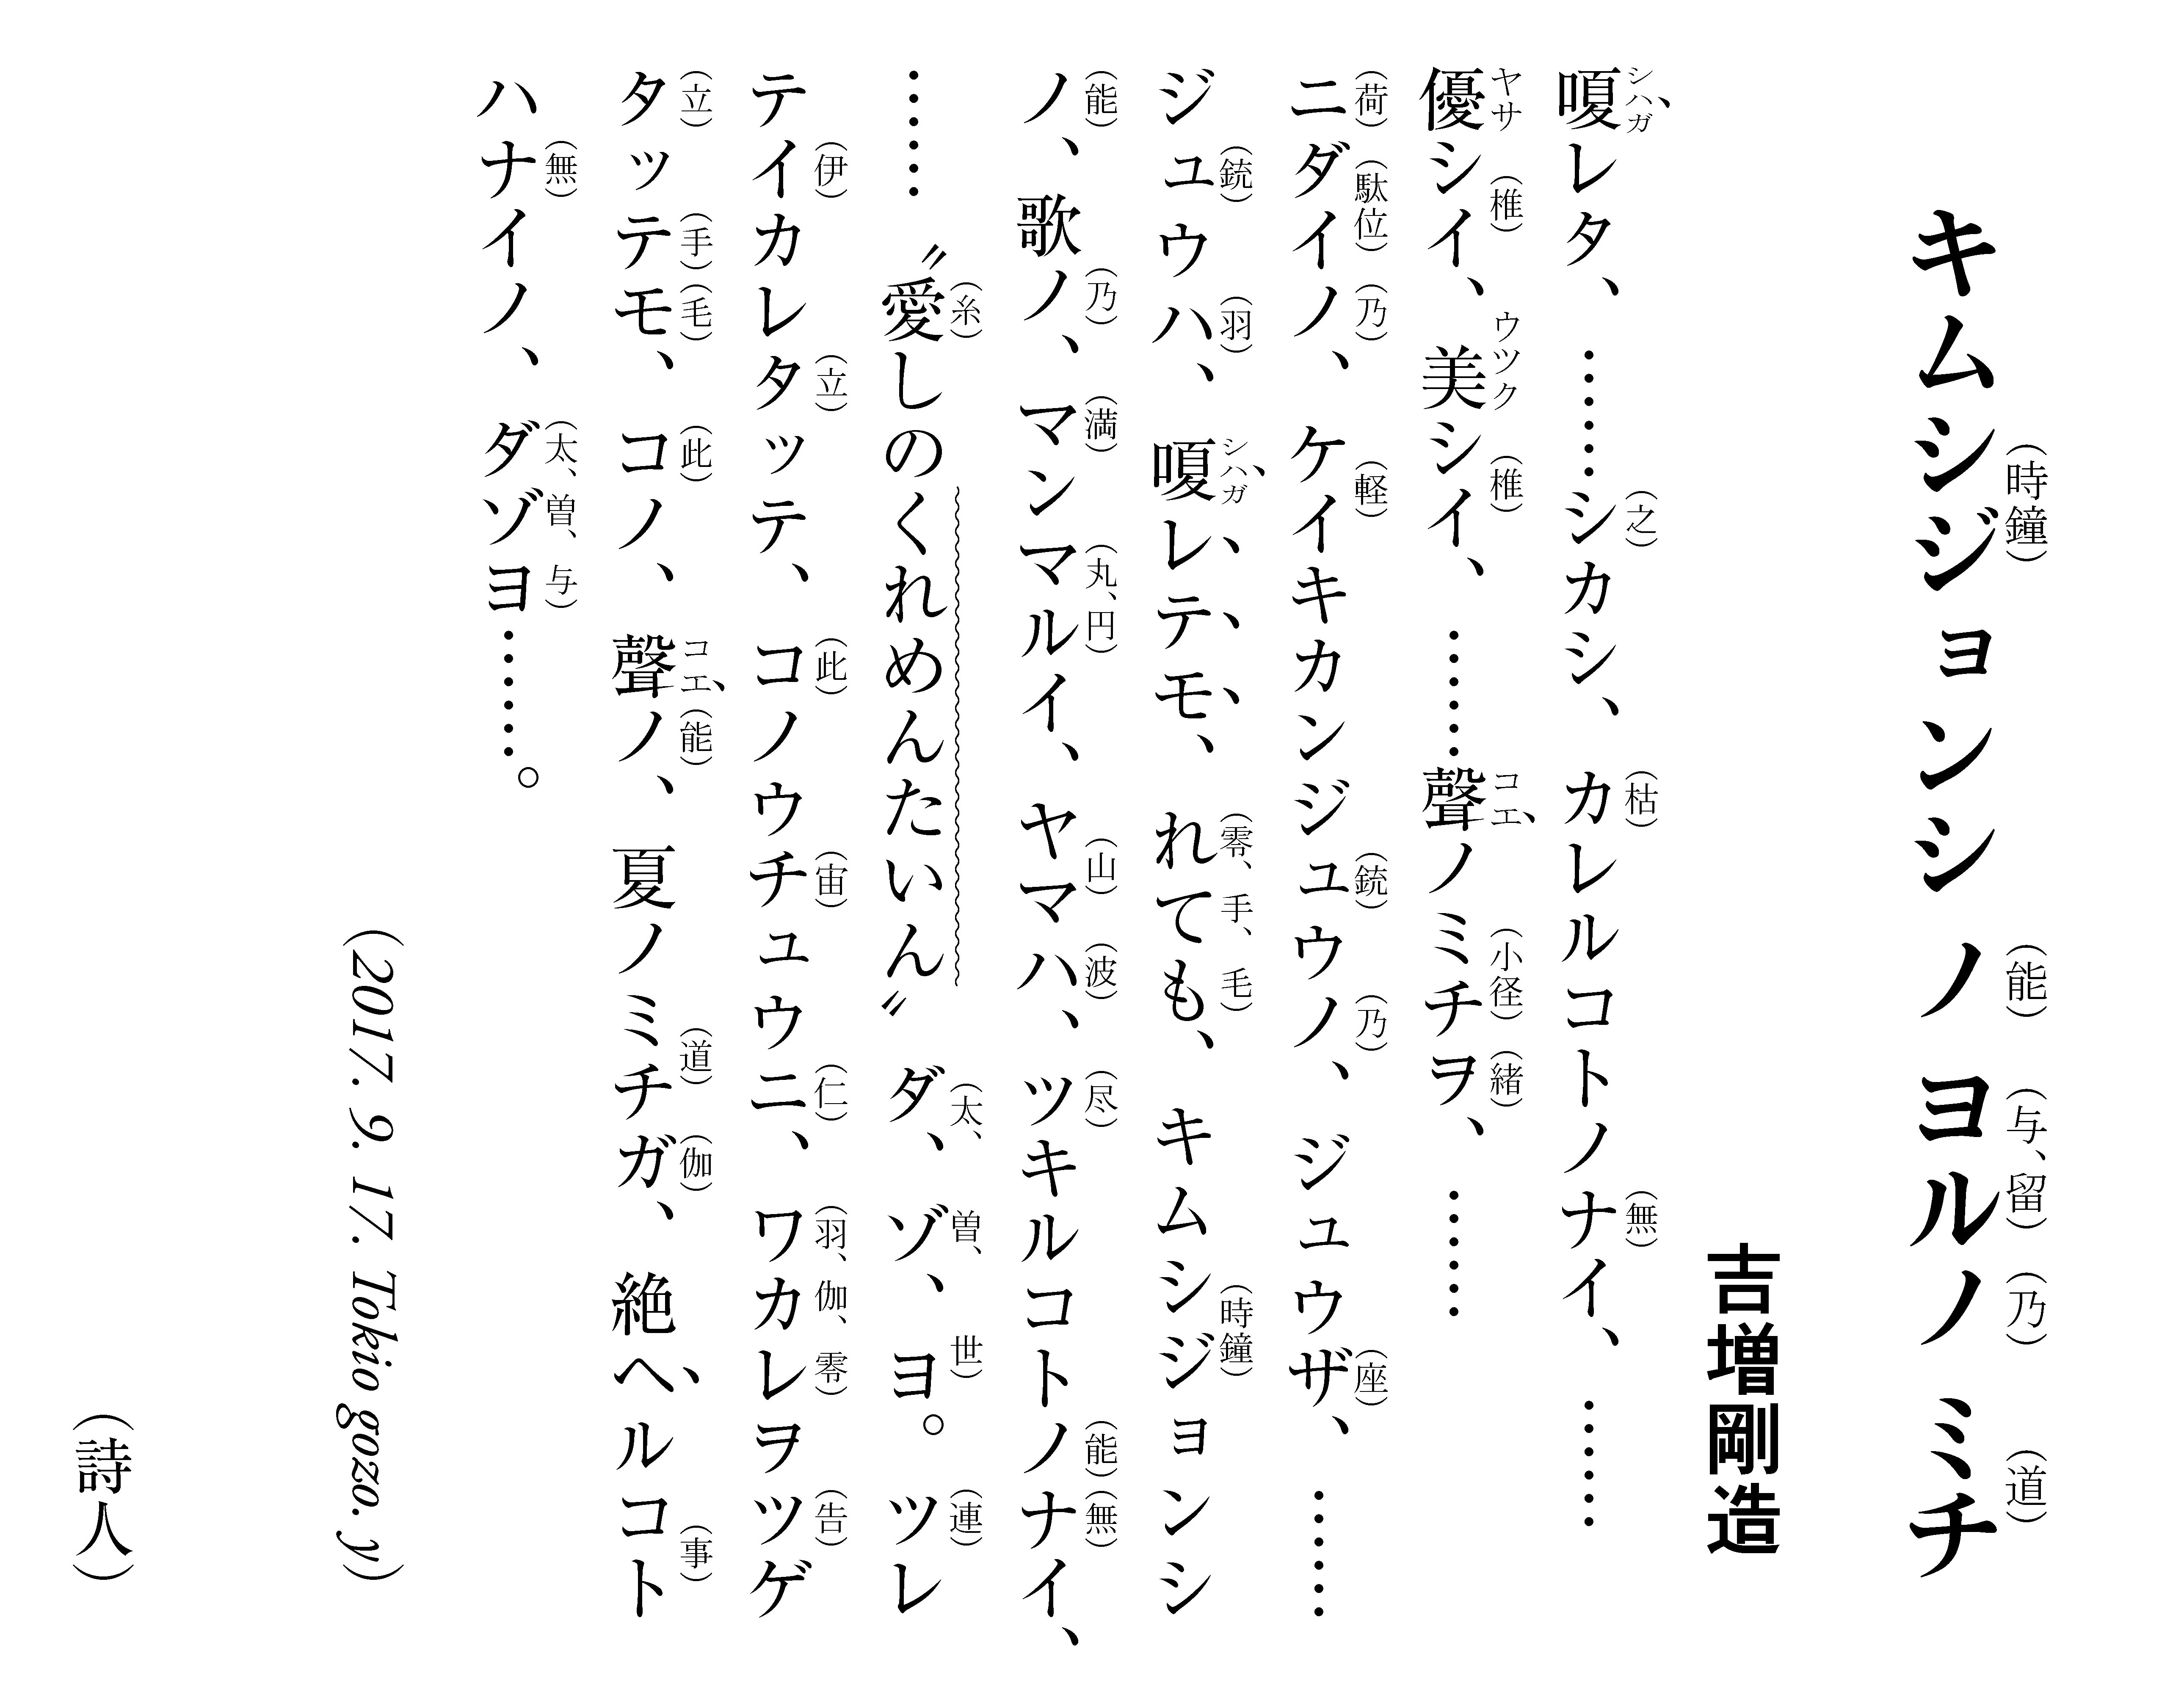 キムシジョンシノヨルノミチ
(時鐘)(能)(与、留)(乃)(道)
吉増剛造
嗄レタ、……シカシ、カレルコトノナイ、……
シハ、ガ(之)(枯)(無)
優シイ、美シイ、……聲ノミチヲ、……
ヤサ(椎)ウツク(椎)コエ、(小径)(緒)
ニダイノ、ケイキカンジュウノ、ジュウザ、……
(荷)(駄位)(乃)(軽)(銃)(乃)(座)
ジュウハ、嗄レテモ、れても、キムシジョンシ
(銃)(羽)シハ、ガ、、、(零、手、毛)(時鐘)
ノ、歌ノ、マンマルイ、ヤマハ、ツキルコトノナイ、
(能)(乃)(満)(丸、円)(山)(波)(尽)(能)(無)
……〝愛しのくれめんたいん〟ダ、ゾ、ヨ。ツレ
(糸)(太、曽、世)(連)
テイカレタッテ、コノウチュウニ、ワカレヲツゲ
(伊)(立)(此)(宙)(仁)(羽、伽、零)(告)
タッテモ、コノ、聲ノ、夏ノミチガ、絶ヘルコト
(立)(手)(毛)(此)コエ、(能)(道)(伽)、(事)
ハナイノ、ダゾヨ……。
(無)(太、曽、与)
(2017. 9. 17. Tokio gozo. y)
(詩人)